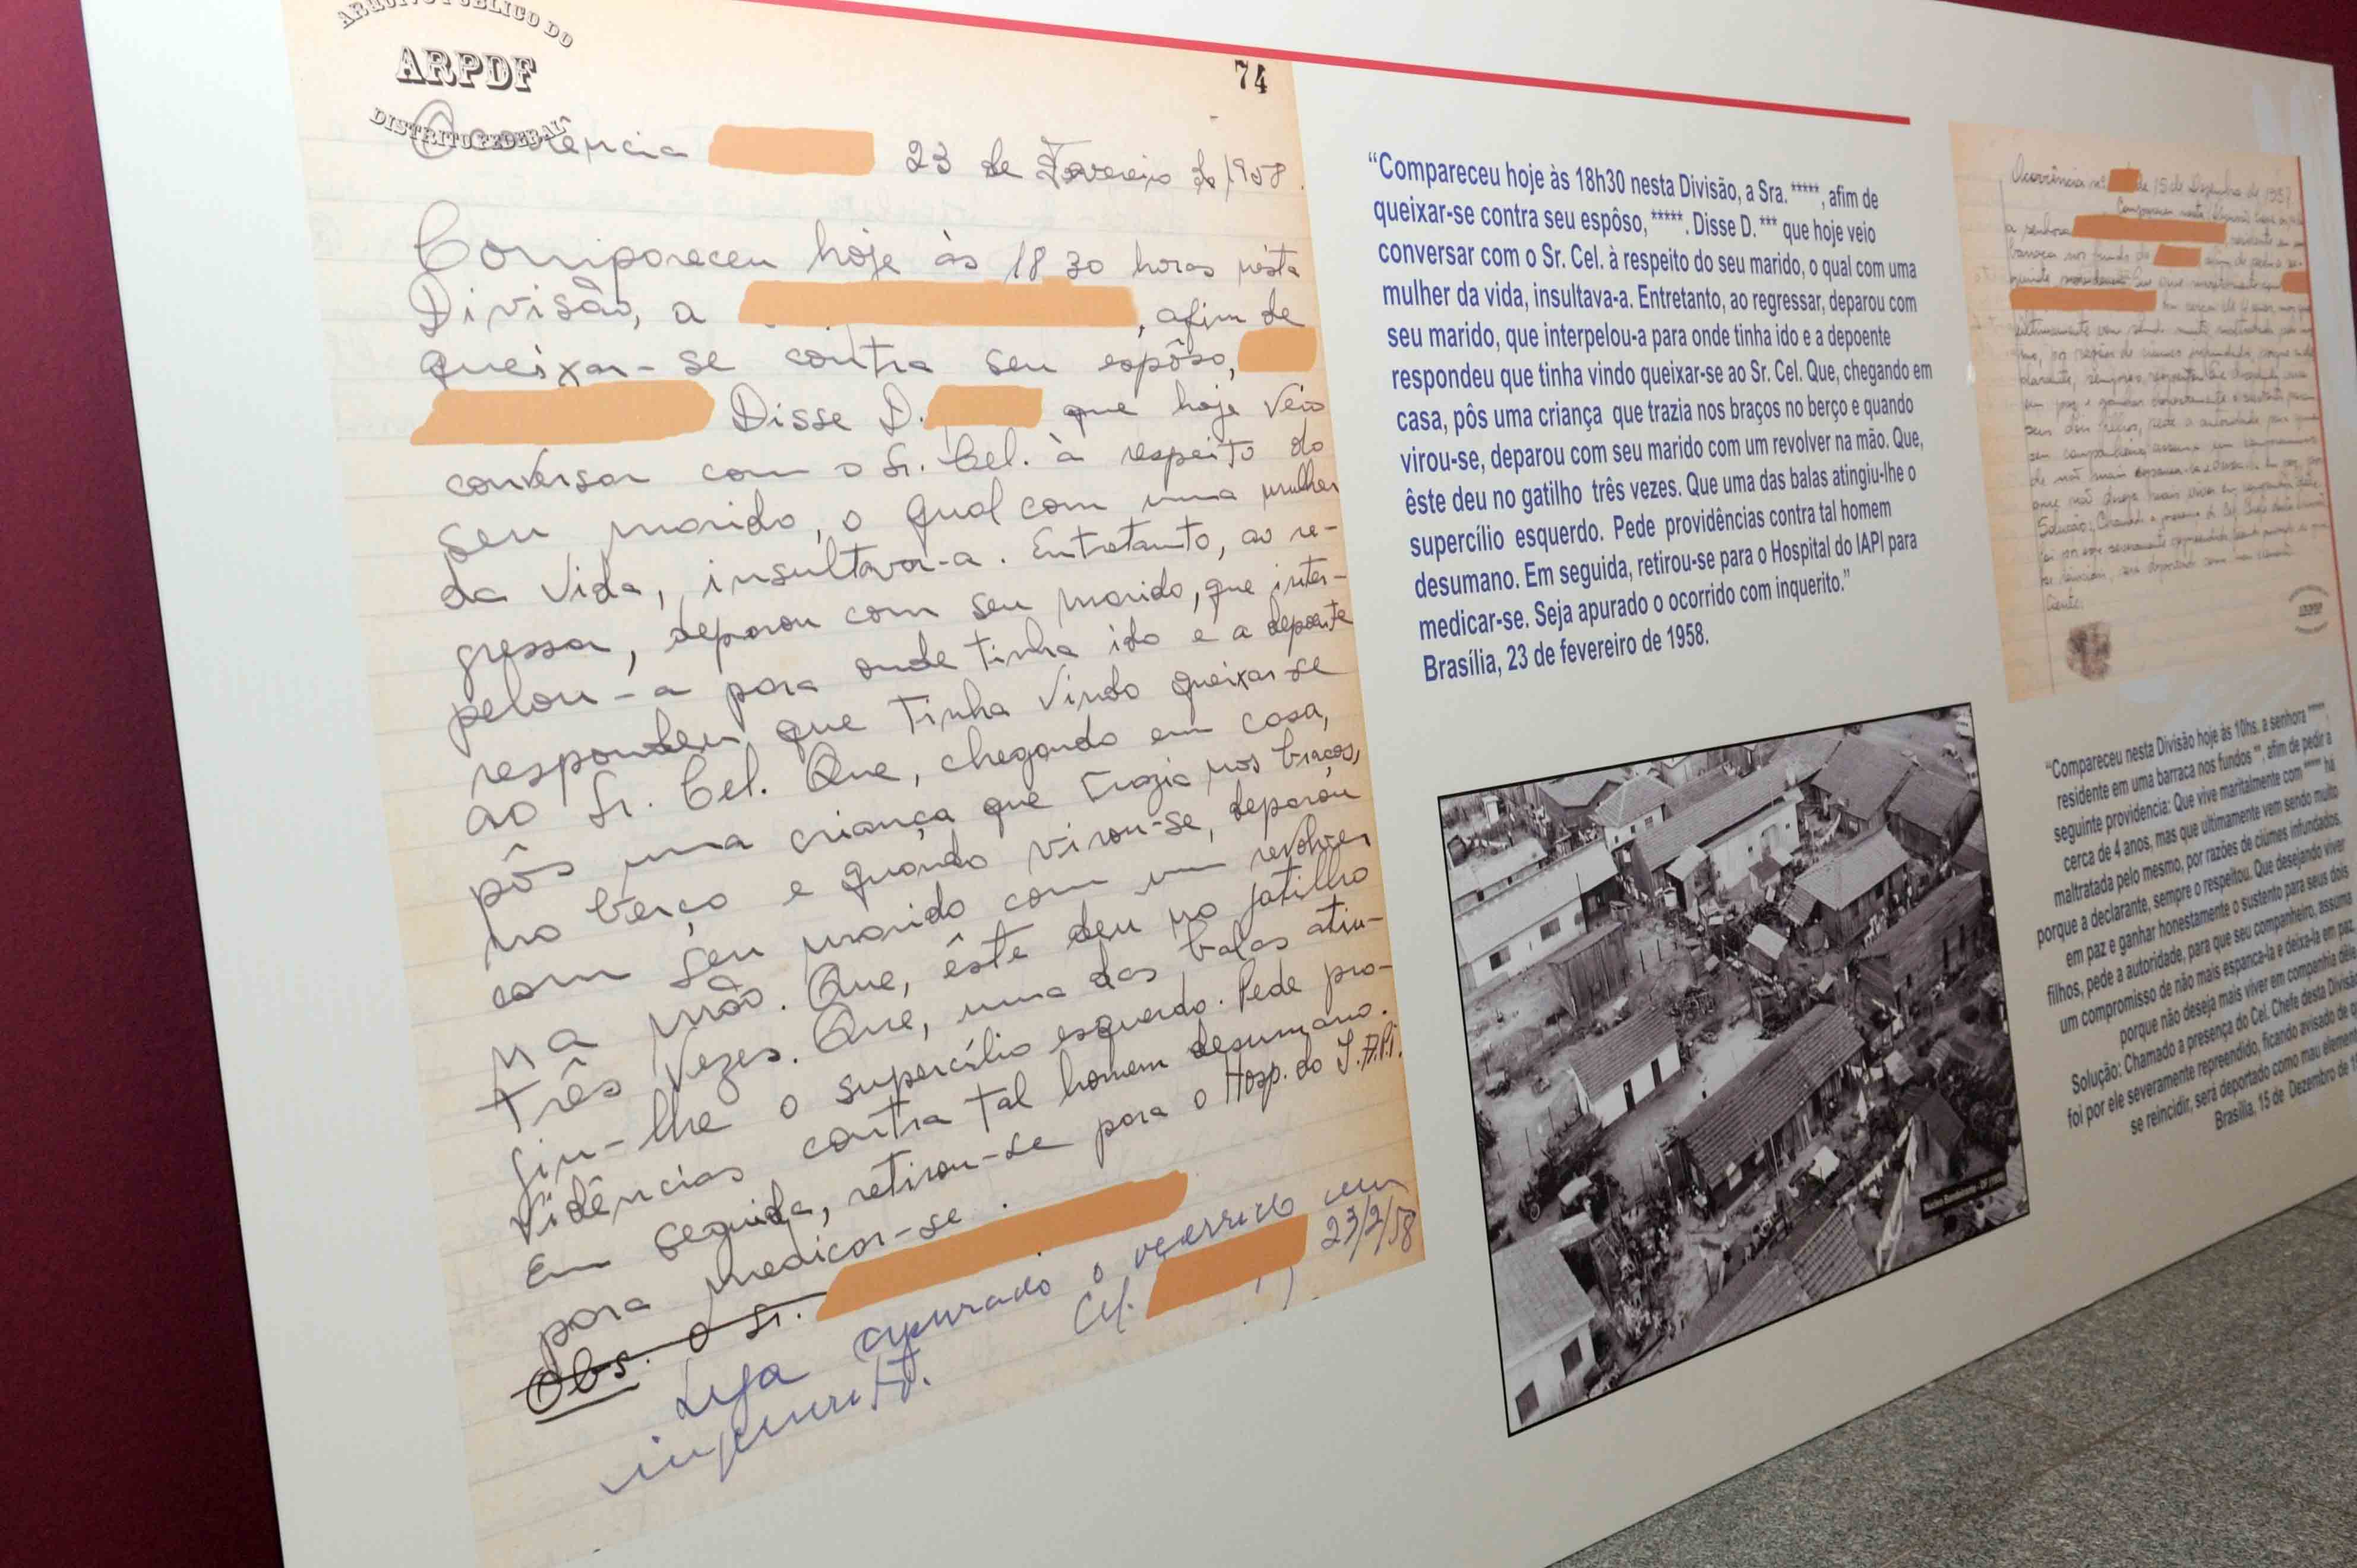 ARQUIVO PÚBLICO DO
ARPDF
DISTRITO FEDERAL
74
Ocorrência 23 de Fevereiro de 1958.
Compareceu hoje às 18 30 horas nesta
Divisão, a , afim de
queixar-se contra seu espôso,
Disse D. que hoje veio
conversar com o Sr. Cel. à respeito do
seu marido, o qual com uma mulher
da vida, insultava-a. Entretanto, ao re-
gressar, deparou com seu marido, que inter-
pelou-a para onde tinha ido e a depoente
respondeu que tinha vindo queixar-se
ao Sr. Cel. Que, chegando em casa,
pôs uma criança que trazia nos braços,
no berço e quando virou-se, deparou
com seu marido com um revolver
na mão. Que, êste deu no gatilho
três vezes. Que, uma das balas atin-
giu-lhe o supercílio esquerdo. Pede pro-
vidências contra tal homem desumano.
Em seguida, retirou-se para o Hosp. do I.A.P.I.
para medicar-se.
Obs. o Sr.
Seja apurado o ocorrido com
inquerito.
Cel. 23/2/58
“Compareceu hoje às 18h30 nesta Divisão, a Sra. *****, afim de
queixar-se contra seu espôso, *****. Disse D. *** que hoje veio
conversar com o Sr. Cel. à respeito do seu marido, o qual com uma
mulher da vida, insultava-a. Entretanto, ao regressar, deparou com
seu marido, que interpelou-a para onde tinha ido e a depoente
respondeu que tinha vindo queixar-se ao Sr. Cel. Que, chegando em
casa, pôs uma criança que trazia nos braços no berço e quando
virou-se, deparou com seu marido com um revolver na mão. Que,
êste deu no gatilho três vezes. Que uma das balas atingiu-lhe o
supercílio esquerdo. Pede providências contra tal homem
desumano. Em seguida, retirou-se para o Hospital do IAPI para
medicar-se. Seja apurado o ocorrido com inquerito.”
Brasília, 23 de fevereiro de 1958.
Ocorrência nº de 15 de Dezembro de 1957
Compareceu nesta Divisão
a senhora
Solução: Chamado a presença do Cel. Chefe desta Divisão
Ciente:
ARPDF
“Compareceu nesta Divisão hoje às 10hs. a senhora *****,
residente em uma barraca nos fundos **, afim de pedir a
seguinte providencia: Que vive maritalmente com ***** há
cerca de 4 anos, mas que ultimamente vem sendo muito
maltratada pelo mesmo, por razões de ciúmes infundados,
porque a declarante, sempre o respeitou. Que desejando viver
em paz e ganhar honestamente o sustento para seus dois
filhos, pede a autoridade, para que seu companheiro, assuma
um compromisso de não mais espanca-la e deixa-la em paz,
porque não deseja mais viver em companhia dêle.
Solução: Chamado a presença do Cel. Chefe desta Divisão
foi por ele severamente repreendido, ficando avisado de q
se reincidir, será deportado como mau element
Brasília, 15 de Dezembro de 1